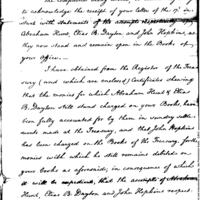 to acknowledge the receipt of your letter of the 9th in-
stant with statements of the accounts respectively of
Abraham Hunt, Elias B. Dayton and John Hopkins, as
they now stand and remain upon the Books of
your Office.
I have obtained from the Register of the Trea-
sury (and which are enclosed) Certificates shewing
that the monies for which Abraham Hunt & Elias
B. Dayton still stand charged on your Books, have
been fully accounted for by them in sundry settle-
ments made at the Treasury, and that John Hopkins
has been charged on the Books of the Treasury, for the
monies with which he still remains debited on
your Books as aforesaid; in consequence of which
it will be expedient, that the accounts of Abraham
Hunt, Elias B. Dayton and John Hopkins respect-